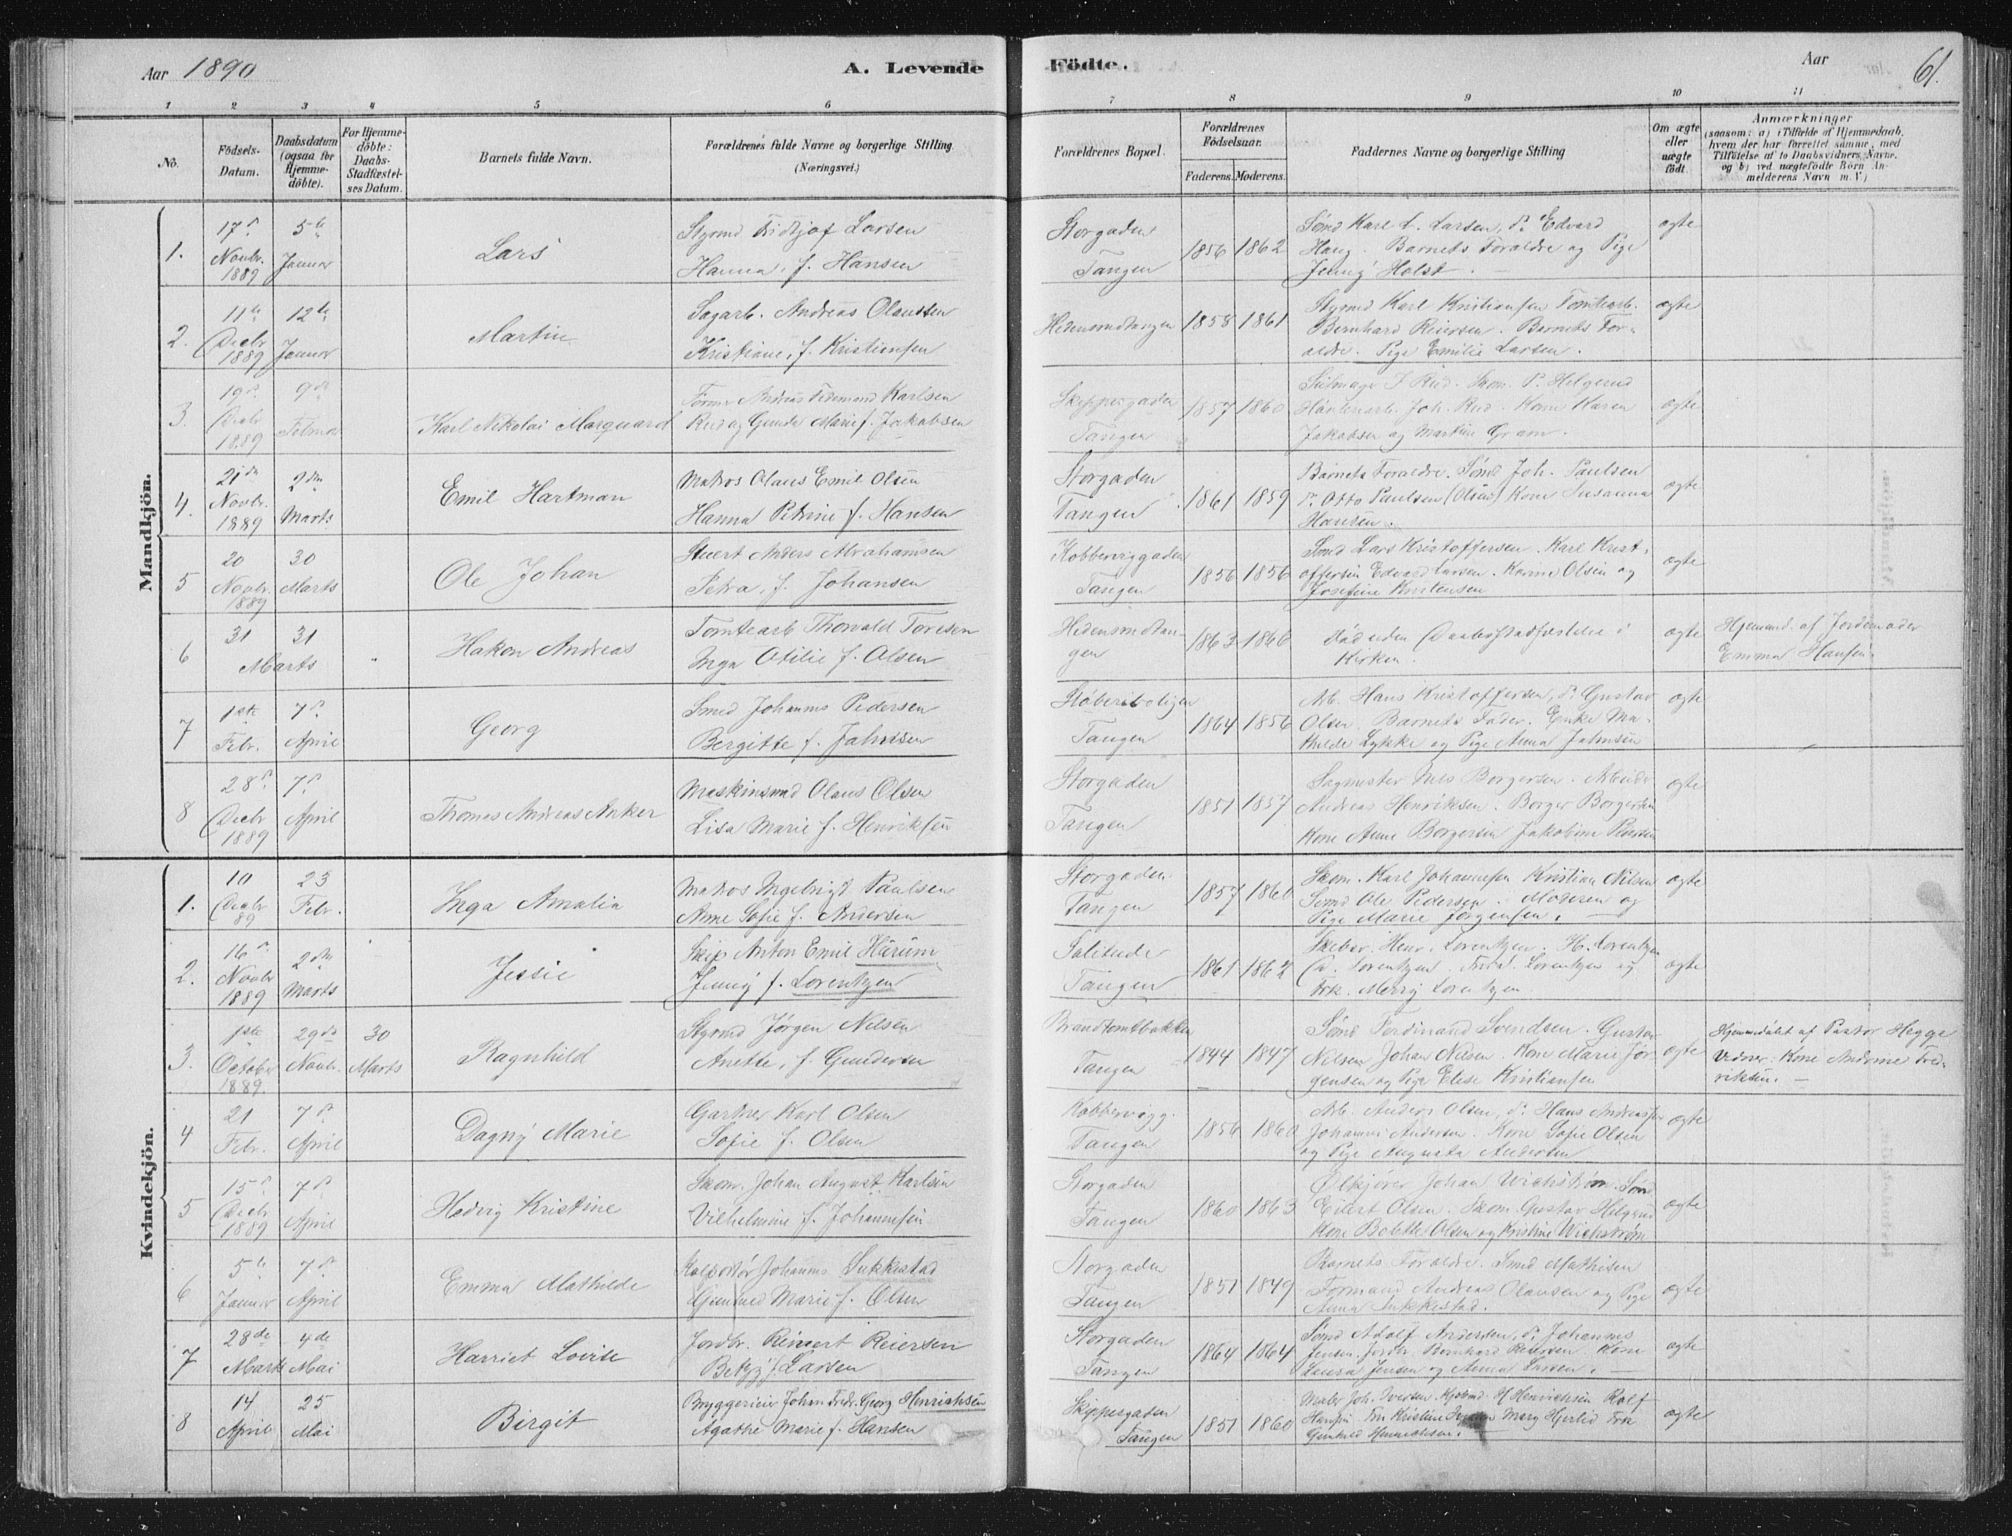 Aar 1890
A. Levende
Födte.
Aar
61.
1 2 3 4 5 6 7 8 9 10 11
No.
Födsels-Datum.
Daabsdatum (ogsaa for Hjemme-döbte).
For Hjemme-döbte: Daabs-Stadfæstel-ses Datum.
Barnets fulde Navn.
Forældrenes fulde Navne og borgerlige Stilling (Næringsvei.)
Forældrenes Bopæl.
Forældrenes Födselsaar.
Faderens. Moderens.
Faddernes Navne og borgerlige Stilling
Om ægte eller uægte födt.
Anmærkninger
(saasom: a) i Tilfælde af Hjemmedaab, hvem der har forrettet samme, med Tilföielse af to Daabsvidners Navne. og b) ved uægtefödte Börn Anmelderens Navn m. V.)
Mandkjön.
1. 17d Novbr. 1889 5te Januar Lars
Styrmd Fridtjof Larsen
Hanna, f. Hansen
Storgaden Tangen 1856 1862
Sømd Karl L. Larsen, do Edvard
Haug. Barnets Foraldre og Pige
Jenny Holst.
ægte
2. 11te Decbr 1889 12te Januar Martin
Sagarb. Andreas Olaussen
Kristiane, f. Kristiansen
Hedensrudtangen 1858 1861
Styrmd Karl Kristiansen Tomtearb.
Bernhard Reiersen. Barnets For-
ældre. Pige Emilie Larsen.
ægte
3 19d Decbr 1889 9de Februar Karl Nikolai Marquard
Former Andreas Ferdinand Karlsen
Rud og Gunda Marie f. Jakobsen
Skippergaden Tangen 1857 1860
Joh. Rud. Kone Karen
Jakobsen og Martine Gram.
ægte
4. 21de Novbr. 1889 2den Marts Emil Hartman
Matros Olaus Emil Olsen
Hanna Petrine f. Hansen
Storgaden Tangen 1861 1859
Barnets Foraldre. Sømd Joh. Paulsen
do Otto Paulsen (Olsen) Kone Susanna
Hansen.
ægte
5 20 Novbr. 1889 30 Marts Ole Johan
Stuert Anders Abrahamsen
Petra, f. Johansen
Kobberviggaden Tangen 1856 1856
Sømd Lars Kristoffersen. Karl Krist-
offersen Edvard Larsen. Karine Olsen og
Josefine Kristensen
ægte
6 31 31 Marts Hakon Andreas
Tomtearb Thorvald Toresen
Inga Otilie f. Olsen
Hedensrudtan-
gen 1863 1866
Død uden Daabsstadfæstelse i
Kirken.
ægte
Hjemmd. af Jordemoder
Emma Hansen.
7 1ste Febr. 7d April Georg
Smed Johannes Pedersen
Bergitte f. Jahnsen
Støberiboligen Tangen 1864 1856
Arb. Hans Kristoffersen, do Gustav
Olsen. Barnets Fader. Enke Ma-
thilde Lykke og Pige Anna Jahnsen
ægte
8 28d Decbr 1889 7d April Thomas Andreas Anker
Maskinsmd Olaus Olsen
Lisa Marie f. Henriksen
Storgaden Tangen 1851 1857
Sagmester Nils Borgersen. Arbeider
Andreas Henriksen. Borger Borgersen
Kone Anne Borgersen Jakobine
ægte
Kvindekjön.
1. 10 Decbr 89 23 Febr. Inga Amalia
Matros Ingebrigt Paulsen
Anne Sofie f. Andersen
Storgaden Tangen 1857 1860
Skom. Karl Johannesen Kristian Nilsen
Sømd Ole Pedersen. Moderen og
Pige Marie Jørgensen.
ægte
2. 16d Novbr 1889 2den Marts Jessie
Skip Anton Emil Harum
Jenny f. Lorentzen
Solitude Tangen 1861 1862
Skibsr. Henr. Lorentzen. H. Lorentzen
Lorentzen Lorentzen og
Frk. Merry Lorentzen
ægte
3. 1ste October 1889 29de Novbr. 30 Marts Ragnhild
Styrmd Jørgen Nilsen
Anette, f. Gundersen
Brandtomtbakken Tangen 1844 1847
Sømd Ferdinand Svendsen. Gustav
Nilsen. Johan Nilsen. Kone Marie Jør-
gensen og Pige Elise Kristiansen
ægte
Hjemmedøbt af Pastor Hegge
Vidner: Kone Andrine Fred-
riksen.
4 21 Febr. 7d April Dagny Marie
Gartner Karl Olsen
Sofie f. Olsen
Kobbervigg. Tangen 1856 1860
Arb. Anders Olsen, do Hans Andreassen
Johannes Andersen. Kone Sofie Olsen
og Pige Augusta Andersen
ægte
5 15d Decbr 1889 7d April Hedvig Kristine
Skom. Johan August Karlsen
Vilhelmine f. Johannesen
Storgaden Tangen 1860 1863
Ølkjører Johan Wichstrøm. Sømd
Eilert Olsen. Skom. Gustav Helgerud
Kone Bolette Olsen og Kristine Wichstrøm
ægte
6 5te Januar 7d April Emma Mathilde
Kolportør Johannes Sukkestad
Gunhild Marie f. Olsen
Storgaden Tangen 1851 1849
Barnets Foraldre. Smed Mathisen
Formand Andreas Olausen og Pige
Anna Sukkestad.
ægte
7 28de Marts 4de Mai Harriet Lovise
Jordbr. Reinert Reiersen
Betzy f. Larsen
Storgaden Tangen 1864 1864
Sømd Adolf Andersen, do Johannes
Jensen. Jordbr. Bernhard Reiersen. Kone
Laura Jensen og Anna Larsen.
ægte
8 14 April 25 Mai Birgit
Bryggerieier Johan Fredr. Georg Henrichsen
Agathe Marie f. Hansen
Skippergaden Tangen 1851 1860
Maler Joh. Iversen. Kjøbmd H Henrichsen Rolf
Hansen Fru Kristine Marg Hjerlid Frk
Gunhild Henrichsen.
ægte